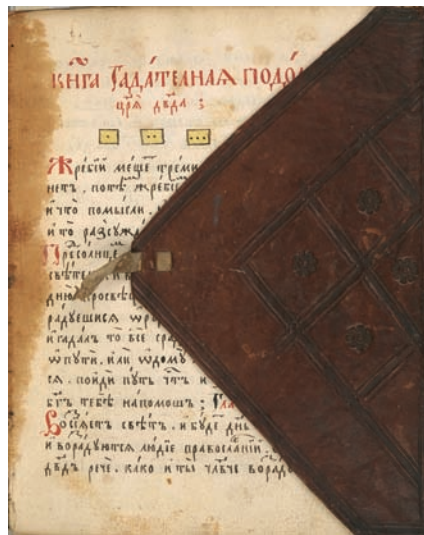 кни́га Гада́телная подо́
цр҃ѧ дв҃да :
Жре́бїи ме́щѐ треми
нетъ. потѣ жребїи
и что помысли.
и то разсужда
Пресолнце
свѣтел. и
дню просвѣ
радуешисѧ ѡ
и гадалъ то все сра
ѡ пути. или ѡ дому
сѧ. поиди путь и
бг҃ъ тебѣ на помощь : Гла
Возсїѧетъ свѣтъ. и бу́де днь
и ворадуютсѧ людїе православнїи.
дв҃дъ рече. како и ты чл҃вче ворад